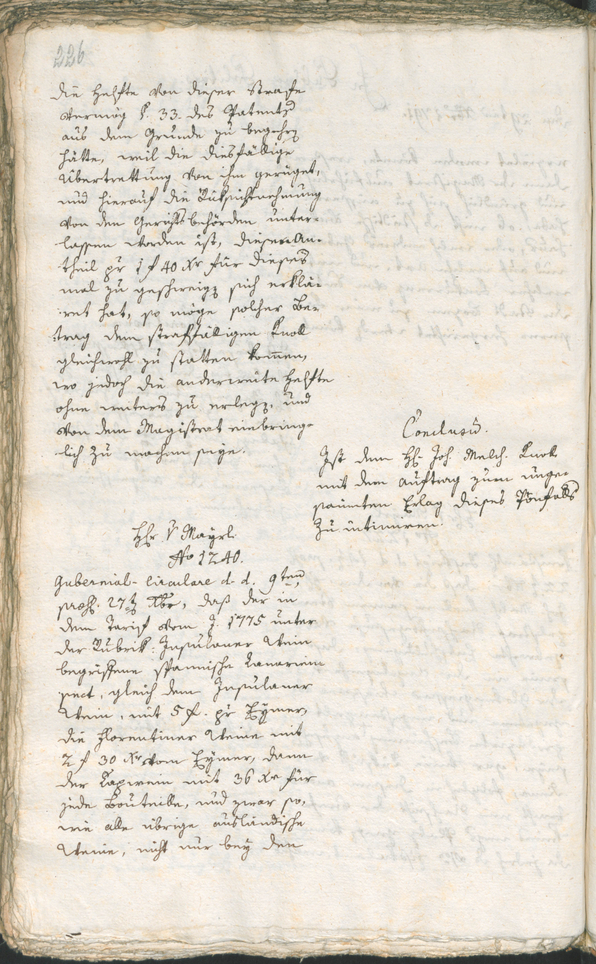 226
die Helfte von dieser Strafe
vermög §. 33. des Patents
aus dem Grunde zu begehrn
hätte, weil die diesfällige
Übertrettung von ihm gerüget,
und hierauf die Rüksichtnehmung
von den Gerichtsbehörden unter-
lassen worden ist, diesen An-
theil pr 1 f 40 Xr für dieses
mal zu geschweign sich erklä-
ret hat, so möge solcher Be-
trag dem straffälligen Knoll
gleichwohl zu statten kommen,
wo jedoch die anderweite Helfte
ohne weiters zu erlegn, und
von dem Magistrat einbring-
lich zu machen seye.
Conclusum.
Ist dem H: Joh. Melch. Knoll
mit dem Auftrag zum unge-
säumten Erlag dieses Pönfalls
zu intimiren.
Hr. v Mayrl.
No 1240.
Gubernial-Circulare d. d. 9ten
prs. 27 Xbr, daß der in
dem Tarif vom J. 1775 unter
der Rubrik: Insulaner Wein
begriffene spanische Canarien
sect, gleich dem Insulaner
Wein, mit 5 f. pr Eymer,
die Florentiner Weine mit
2 f 30 Xr vom Eymer, dann
der Capwein mit 36 Xr für
jede Bouteille, und zwar so,
wie alle übrige ausländische
Weine, nicht nur bey den